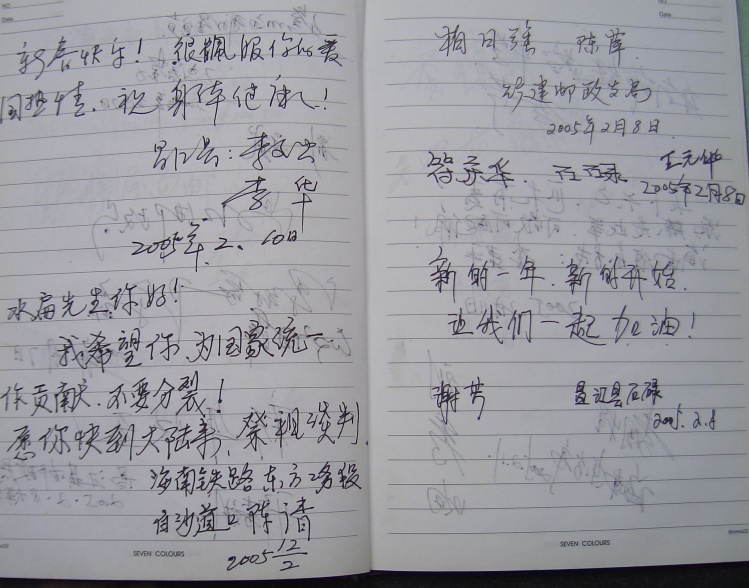 新春快乐！很佩服你的爱
国热情，祝身体健康！
昌江县：李文
李华
2005年.2.10日
水扁先生，你好！
我希望你为国家统一
作贡献，不要分裂！
愿你快到大陆来，祭祖谈判.
海南铁路东方工务段
白沙道口 陈清
2005 12/2
SEVEN COLOURS
Date
陈萍
邮政支局
2005年2月8日
符 华.
2005年2月8日
新的一年，新的开始.
让我们一起加油！
谢芳 昌江县石碌
2005.2.8
SEVEN COLOURS